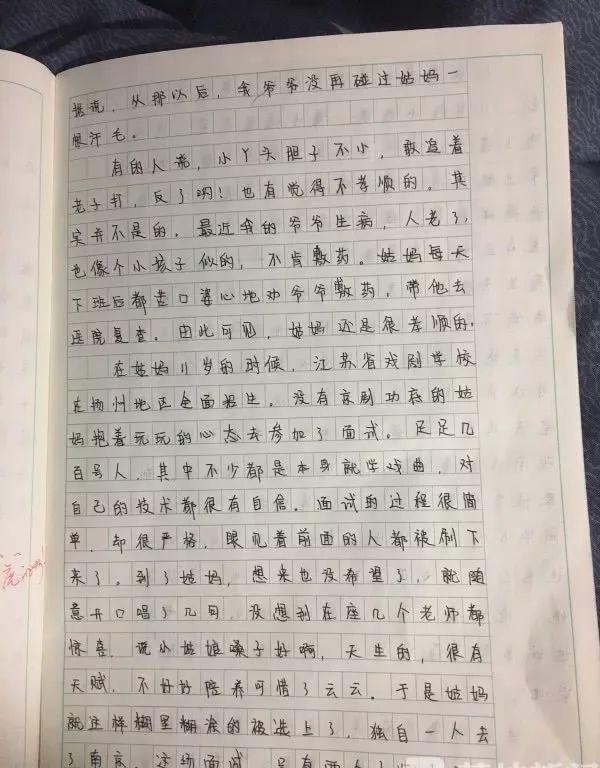 据说，从那以后，我爷爷没再碰过姑妈一
根汗毛。
有的人说，小丫头胆子不小，敢追着
老子打，反了哟！也有觉得不孝顺的。其
实并不是的。最近我的爷爷生病，人老了，
也像个小孩子似的，不肯敷药。姑妈每天
下班后都苦口婆心地劝爷爷敷药，带他去
医院复查。由此可见，姑妈还是很孝顺的。
在姑妈11岁的时候，江苏省戏剧学校
在扬州地区全面招生。没有京剧功底的姑
妈抱着玩玩的心态去参加了面试。足足几
百号人，其中不少都是本身就学戏曲，对
自己的技术都很有自信。面试的过程很简
单，却很严格，眼见着前面的人都被刷下
来了。到了姑妈，想来也没希望了，就随
意开口唱了几句，没想到在座几个老师都
惊喜，说小姑娘嗓子好啊，天生的，很有
天赋，不好好陪养可惜了云云。于是姑妈
就这样糊里糊涂的被选上了，独自一人去
了南京。这场面试，只有两个